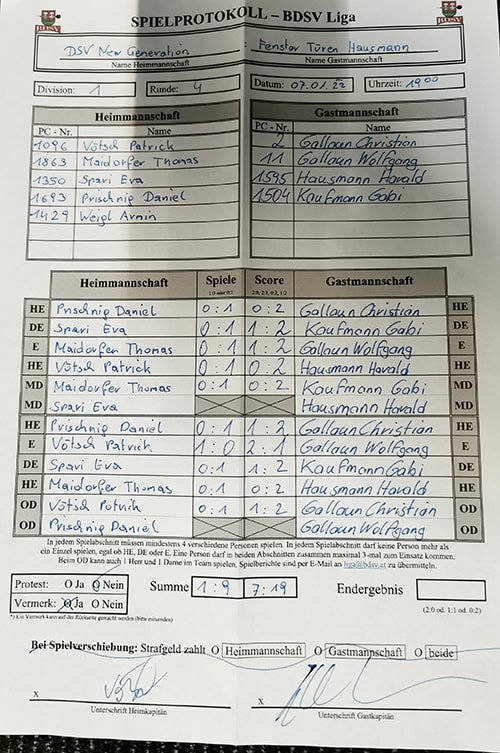 SPIELPROTOKOLL – BDSV Liga
DSV New Generation : Fenster Türen Hausmann
Name Heimmannschaft Name Gastmannschaft
Division: 1 Runde: 4 Datum: 07.01.22 Uhrzeit: 19 00
Heimmannschaft Gastmannschaft
PC - Nr. Name PC - Nr. Name
1096 Vötsch Patrick 2 Gallaun Christian
1863 Maidorfer Thomas 11 Gallaun Wolfgang
1350 Spari Eva 1595 Hausmann Harald
1693 Prischnig Daniel 1504 Kaufmann Gabi
1429 Weigl Armin
Heimmannschaft Spiele Score Gastmannschaft
1:0 oder 0:1 2:0, 2:1, 0:2, 1:2
HE Prischnig Daniel 0:1 0:2 Gallaun Christian HE
DE Spari Eva 0:1 1:2 Kaufmann Gabi DE
E Maidorfer Thomas 0:1 1:2 Gallaun Wolfgang E
HE Vötsch Patrick 0:1 0:2 Hausmann Harald HE
MD Maidorfer Thomas 0:1 0:2 Kaufmann Gabi MD
MD Spari Eva Hausmann Harald MD
HE Prischnig Daniel 0:1 1:2 Gallaun Christian HE
E Vötsch Patrick 1:0 2:1 Gallaun Wolfgang E
DE Spari Eva 0:1 1:2 Kaufmann Gabi DE
HE Maidorfer Thomas 0:1 0:2 Hausmann Harald HE
OD Vötsch Patrick 0:1 1:2 Gallaun Christian OD
OD Prischnig Daniel Gallaun Wolfgang OD
In jedem Spielabschnitt müssen mindestens 4 verschiedene Personen spielen. In jedem Spielabschnitt darf keine Person mehr als
ein Einzel spielen, egal ob HE, DE oder E. Eine Person darf in beiden Abschnitten zusammen maximal 3-mal zum Einsatz kommen.
Beim OD kann auch 1 Herr und 1 Dame im Team spielen. Spielberichte sind per E-Mail an liga@bdsv.at zu übermitteln.
Protest: O Ja O Nein Summe 1:9 7:19 Endergebnis
Vermerk: O Ja O Nein (2:0 od. 1:1 od. 0:2)
*) Ein Vermerk kann auf der Rückseite gemacht werden (bitte mitsenden)
Bei Spielverschiebung: Strafgeld zahlt O Heimmannschaft O Gastmannschaft O beide
x x
Unterschrift Heimkapitän Unterschrift Gastkapitän